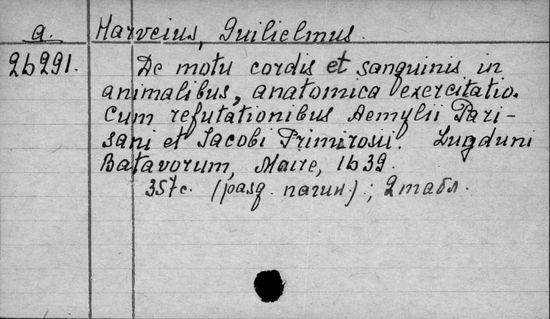 a. Harveius, Guilielmus.
26291. De motu cordis et sanguinis in
animalibus, anatomica exercitatio.
Cum refutationibus Aemylii Pari-
sani et Jacobi Primirosii. Lugduni
Batavorum, Maire, 1639.
357с. (разд. пагин.); 2 табл.